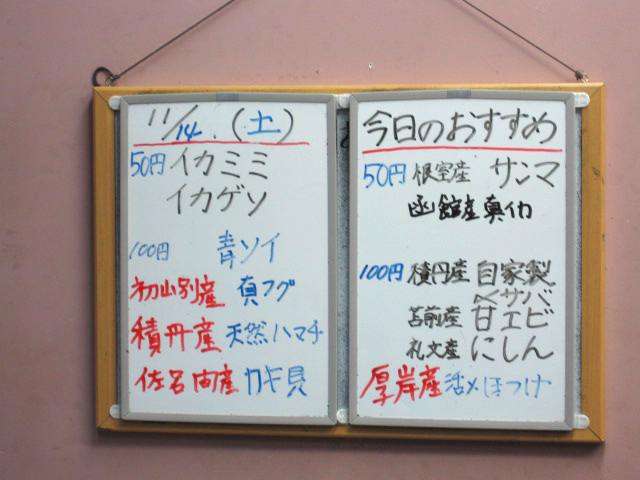 11/14.(土)
50円 イカミミ
イカゲソ
100円 青ソイ
初山別産 真フグ
積丹産 天然ハマチ
佐名間産 カキ貝
今日のおすすめ
50円 根室産 サンマ
函館産真イカ
100円 積丹産 自家製
〆サバ
苫前産 甘エビ
礼文産 にしん
厚岸産 活〆ほっけ